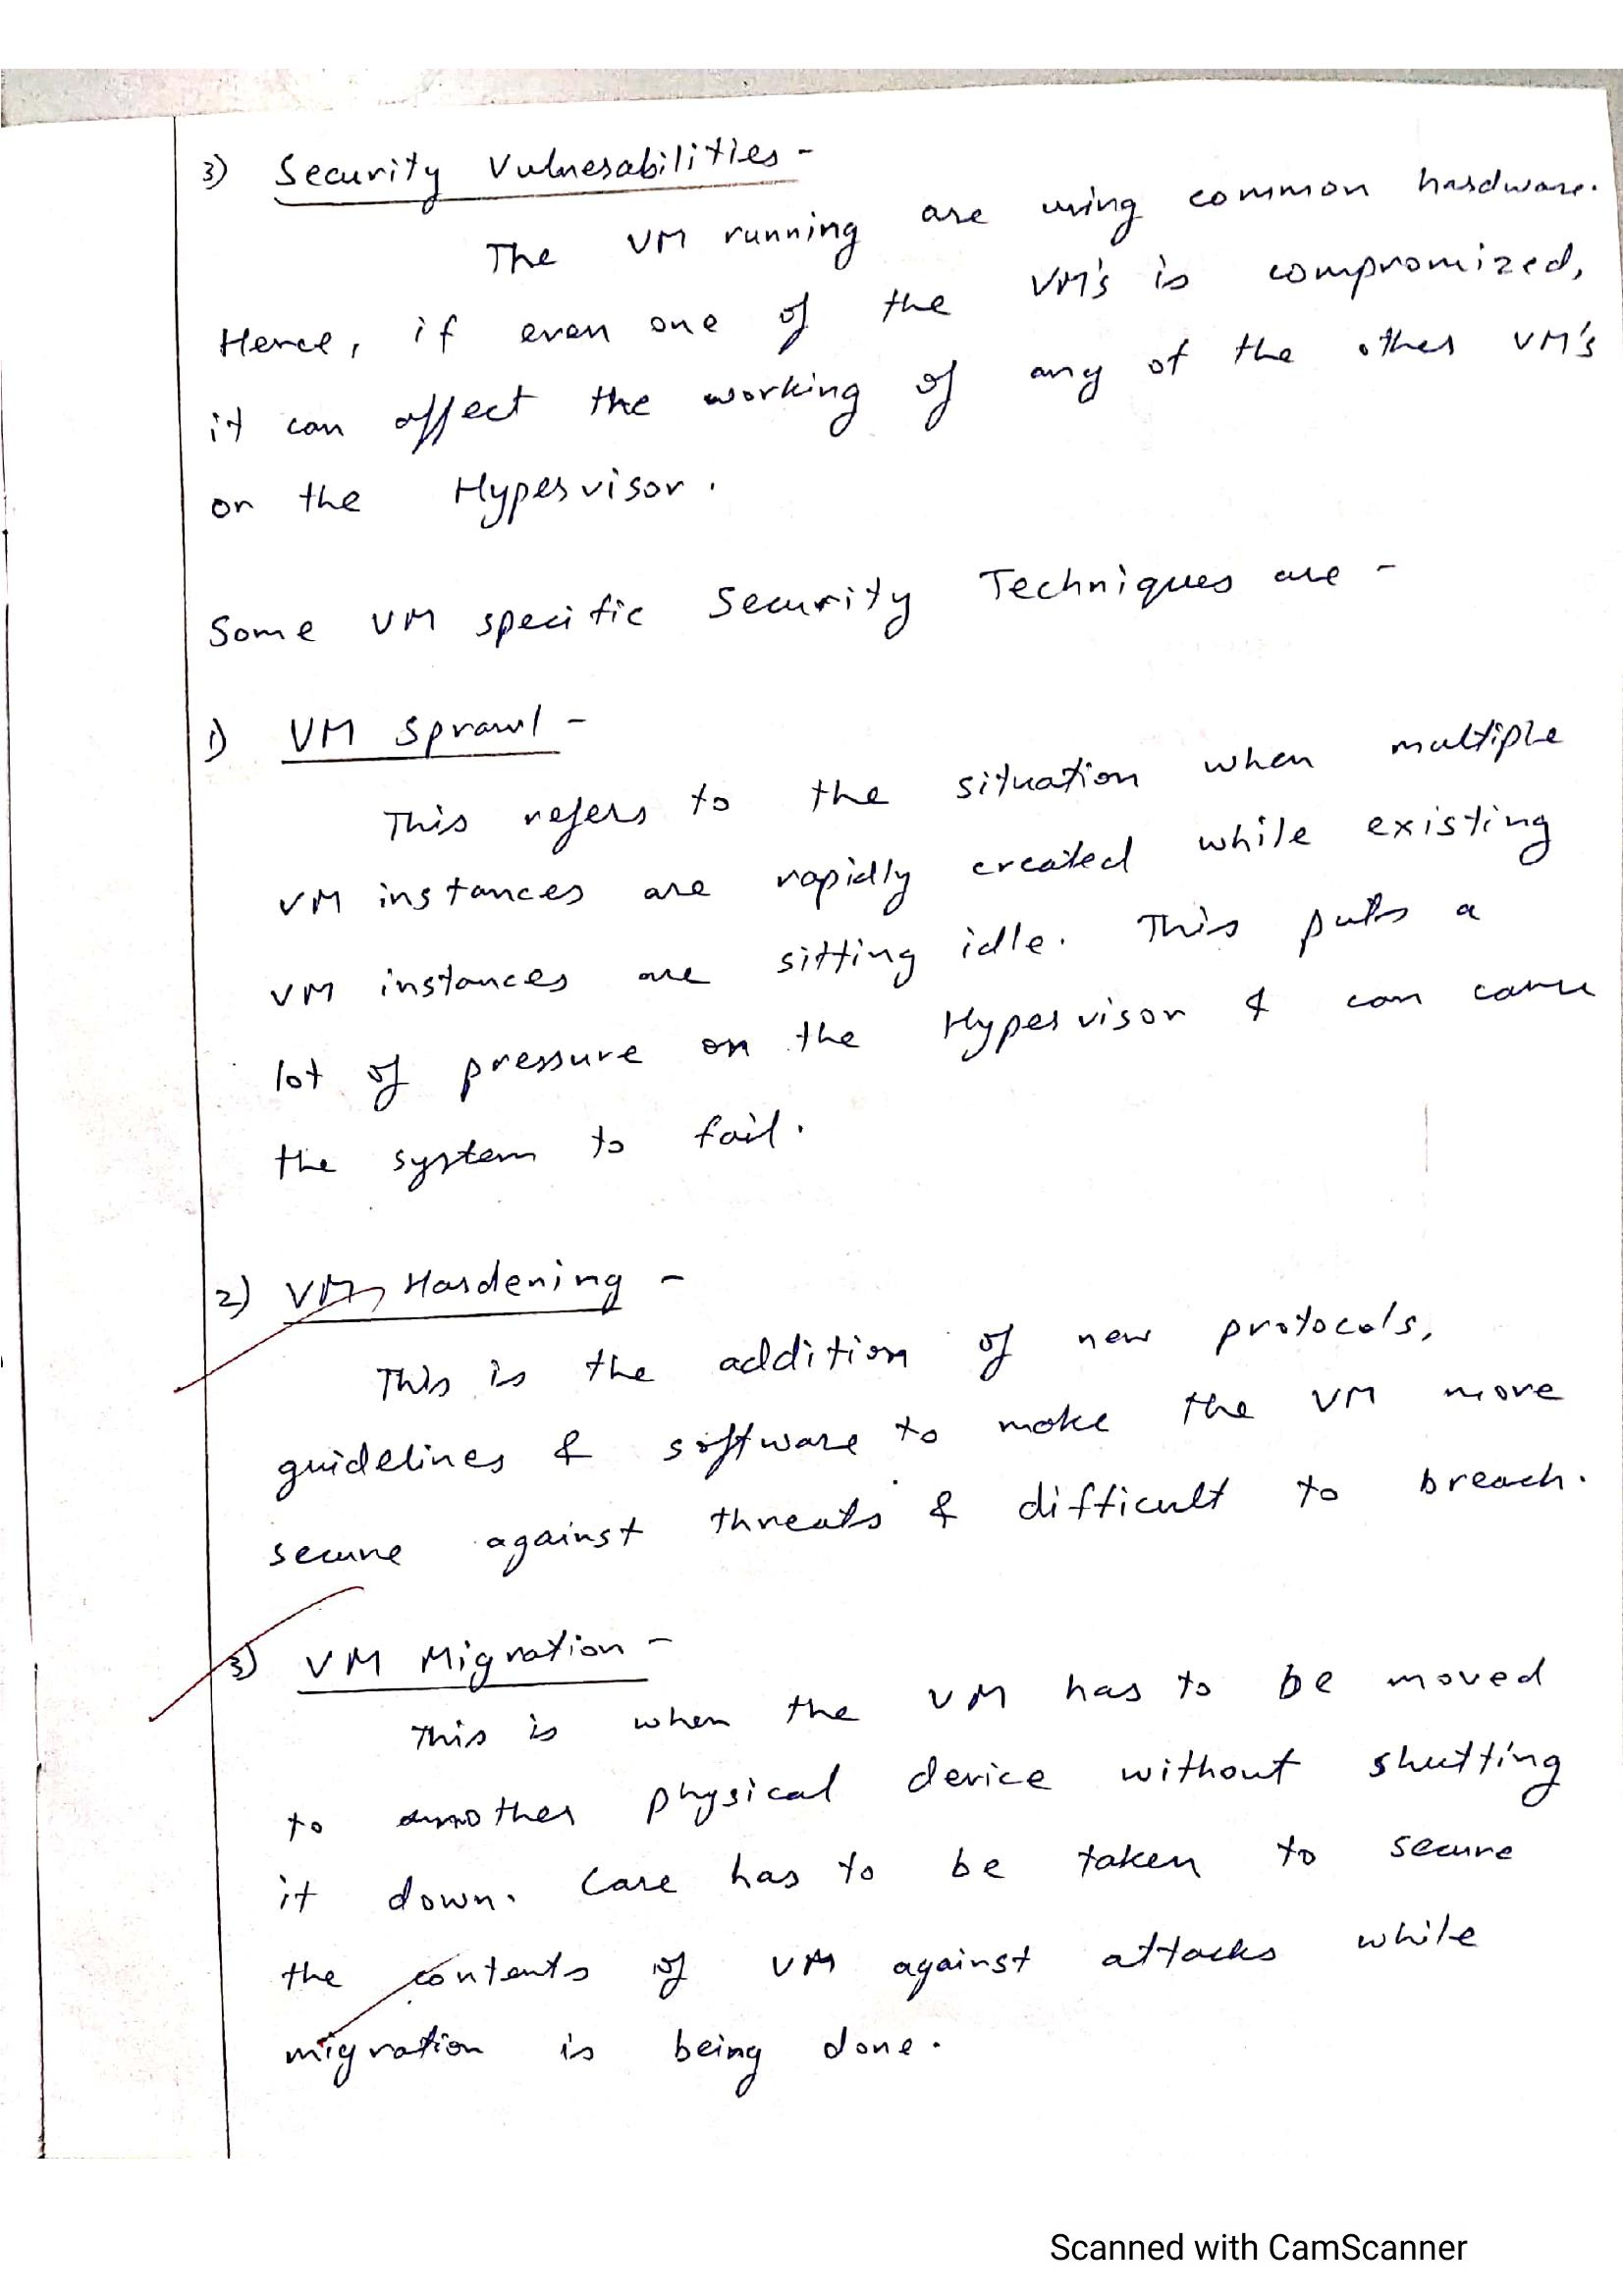 3) Security Vulnerabilities -
The VM running are using common hardware.
Hence, if even one of the VM's is compromized,
it can affect the working of any of the other VM's
or the Hypervisor.
Some VM specific Security Techniques are -
1) VM Sprawl -
This refers to the situation when multiple
VM instances are rapidly created while existing
VM instances are sitting idle. This puts a
lot of pressure on the Hypervisor & can cause
the system to fail.
2) VM Hardening -
This is the addition of new protocols,
guidelines & software to make the VM more
secure against threats & difficult to breach.
3) VM Migration -
This is when the VM has to be moved
to another physical device without shutting
it down. Care has to be taken to secure
the contents of VM against attacks while
migration is being done.
Scanned with CamScanner